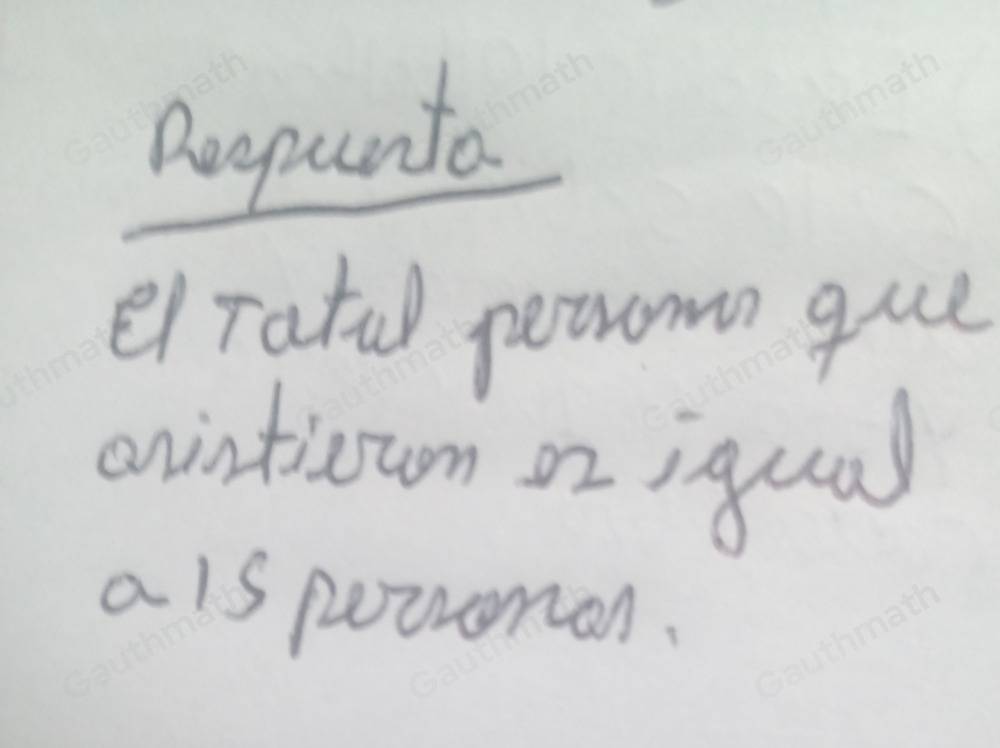 Respuesta
El Total personas que
asistieron es igual
a 15 personas.